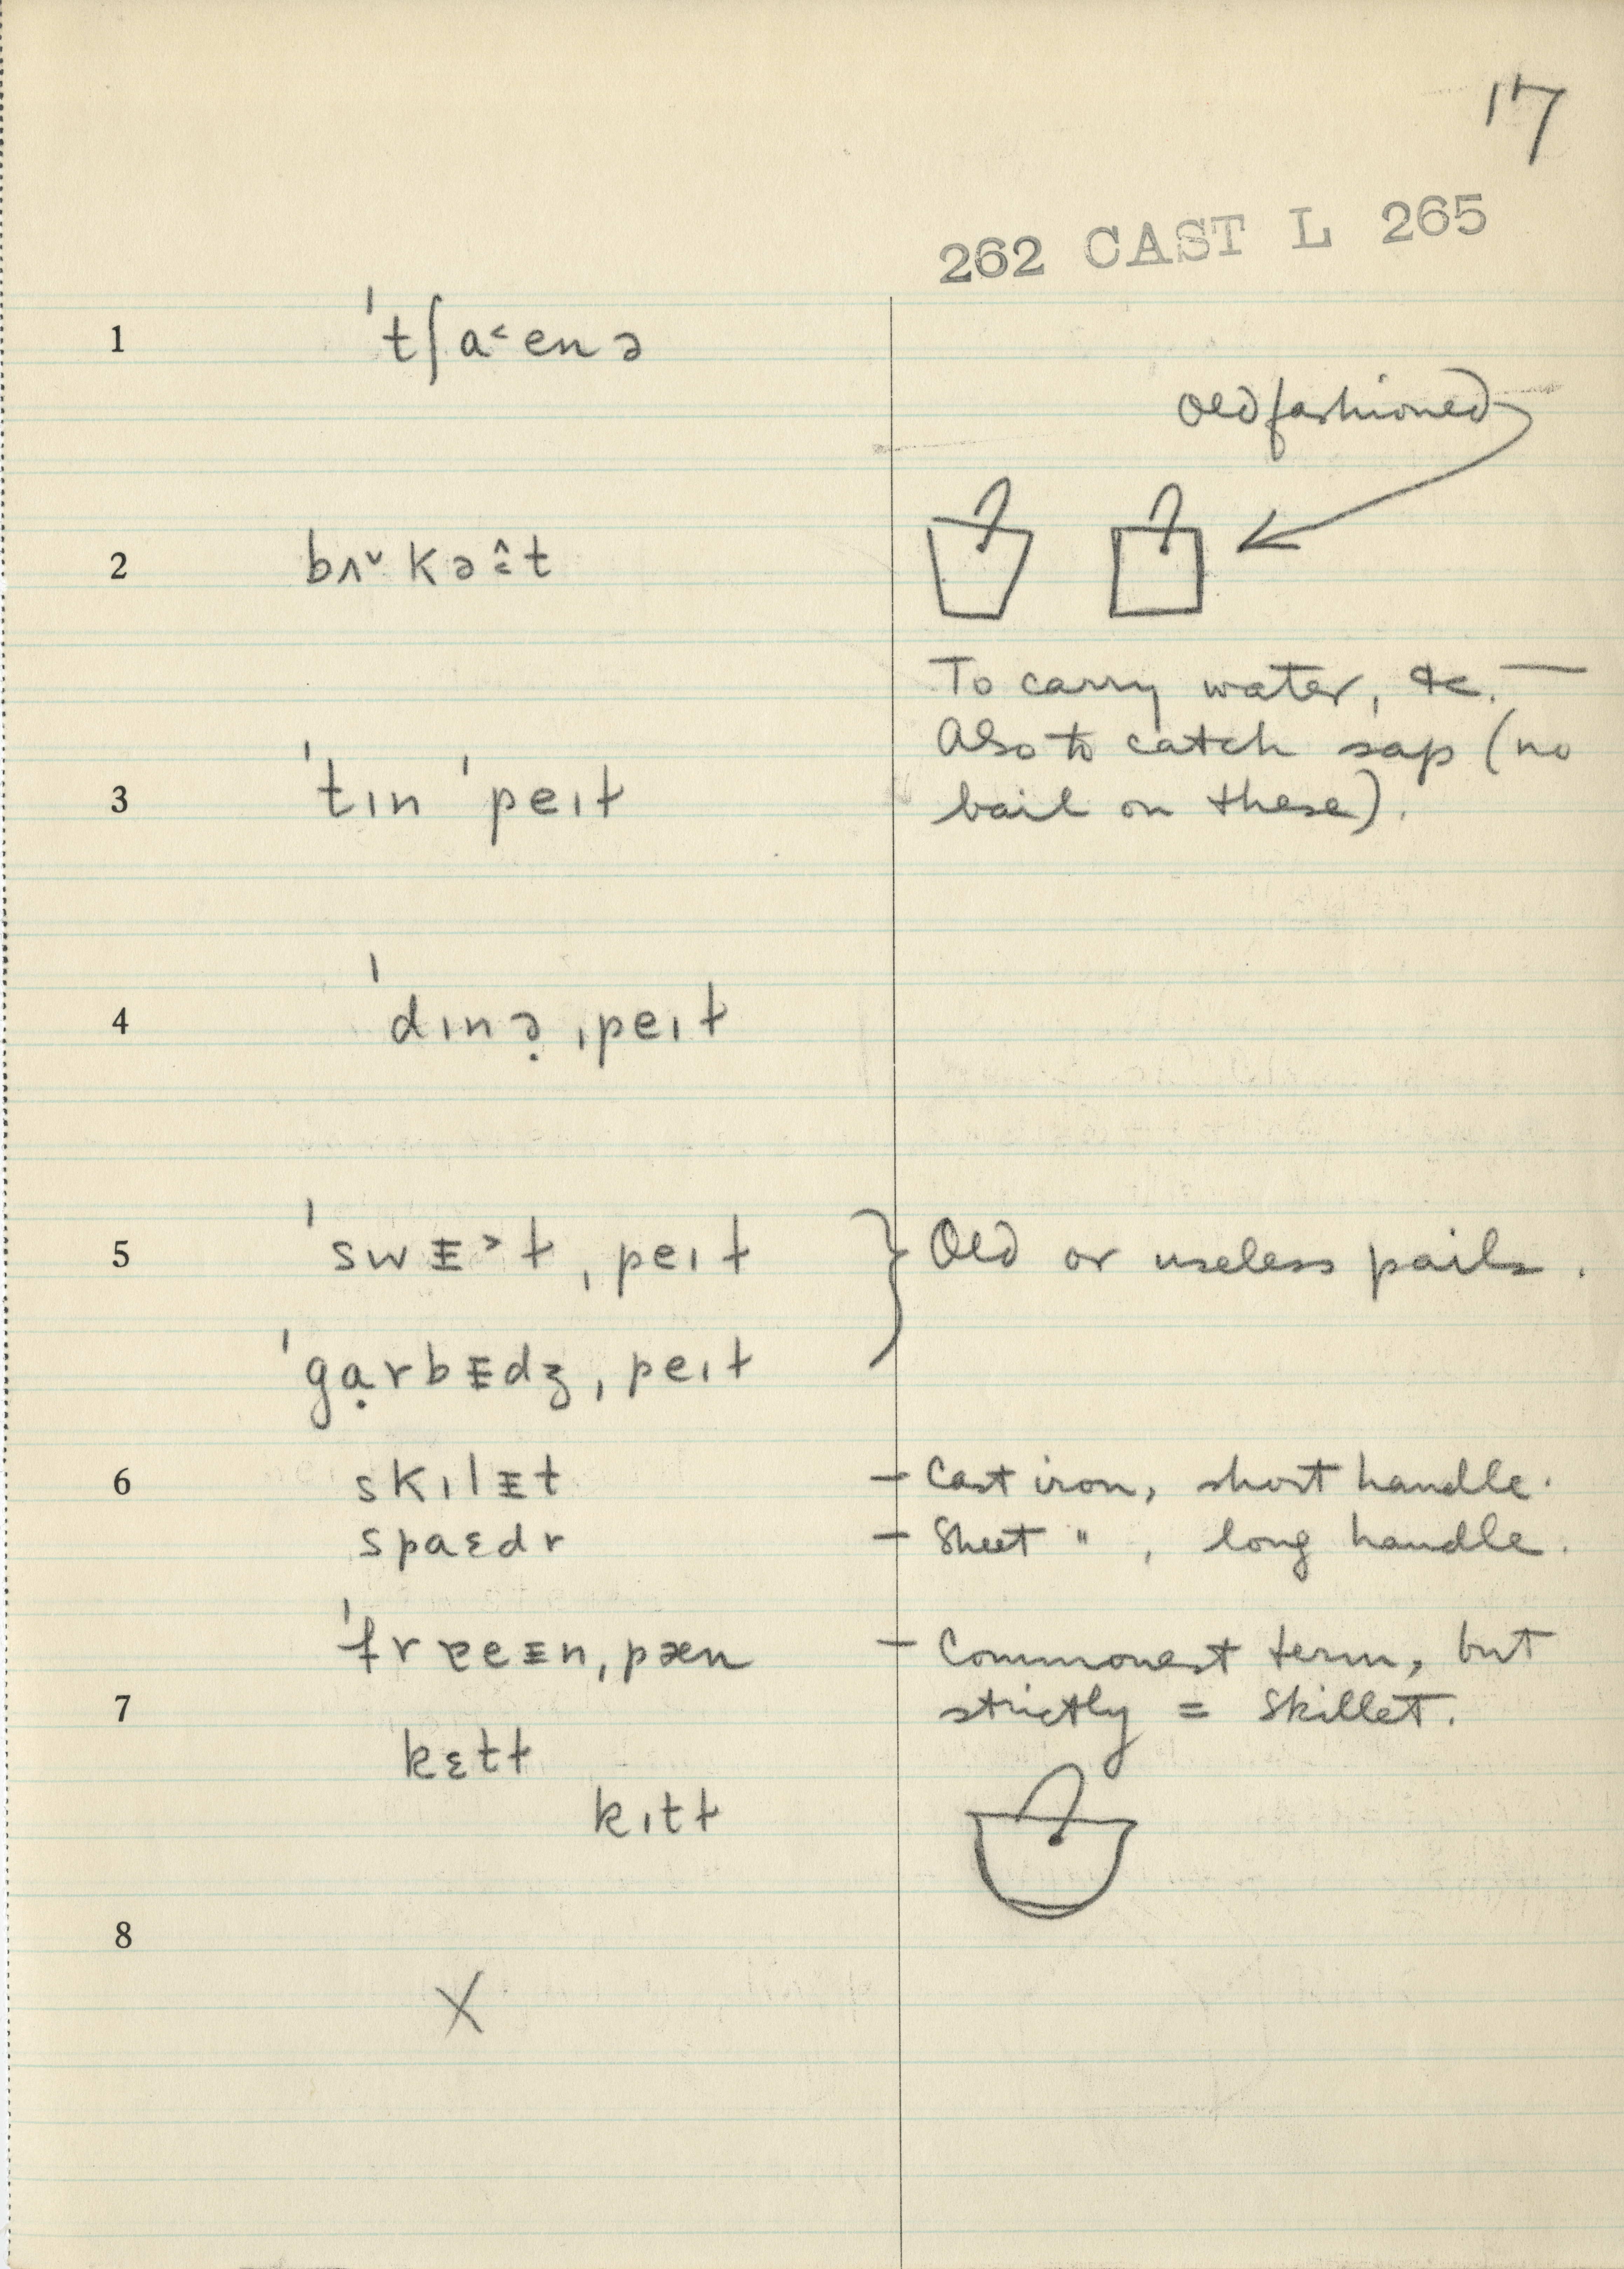 17
262 CAST L 265
1 ˈtʃa˂enə
Old fashioned
2 bʌ˅kə̂t
To carry water, &c. —
Also to catch sap (no
3 ˈtɪn ˈpeɪɫ bail on these).
4 ˈdɪnə̣ ˌpeɪɫ
5 ˈswᵻ˃ɫ ˌpeɪɫ } Old or useless pails.
ˈgạrbᵻdʒ ˌpeɪɫ
6 skɪlᵻt — Cast iron, short handle.
spaɛdr — Sheet " , long handle.
ˈfrɐeᵻn ˌpæn — Commonest term, but
7 strictly = Skillet.
kɛtɫ
kɪtɫ
8
X